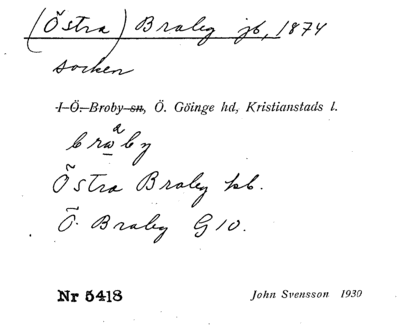 (Östra) Braby jb, 1874
socken
I Ö. Broby sn, Ö. Göinge hd, Kristianstads l.
bra͟by
a
Östra Braby kb.
Ö. Braby G10.
Nr 5418 John Svensson 1930